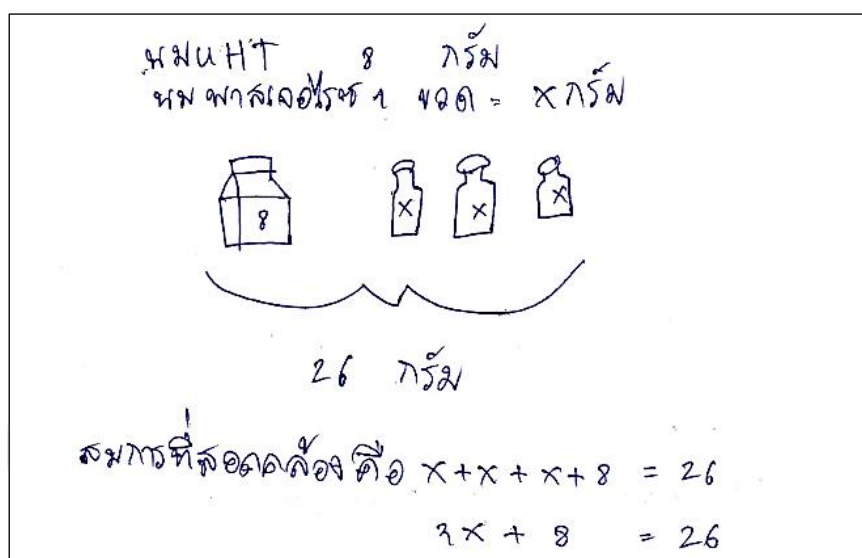 นมUHT 8 กรัม
นมพาสเจอไรซ์ 1 ขวด = x กรัม
8 x x x
26 กรัม
สมการที่สอดคล้อง คือ x+x+x+8 = 26
3x + 8 = 26